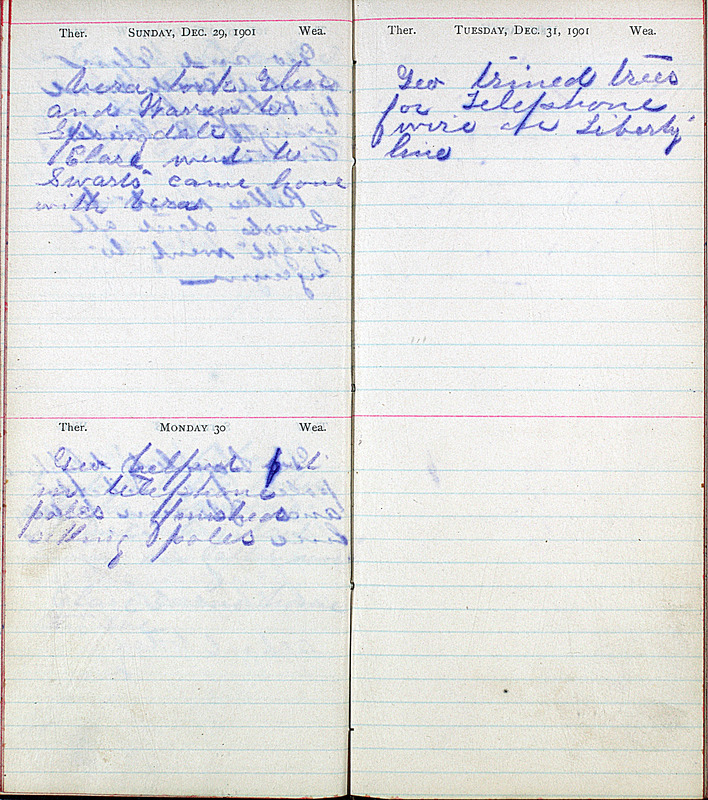 Ther. SUNDAY, DEC. 29, 1901 Wea.
Vera took
and Warren to
Springdale
Clare went to
Swarts came home
with Veras
Ther. MONDAY 30 Wea.
Geo helped
telephone
poles finished
setting poles
Ther. TUESDAY, DEC. 31, 1901 Wea.
Geo trimed trees
for Telephone
wire on Liberty
line